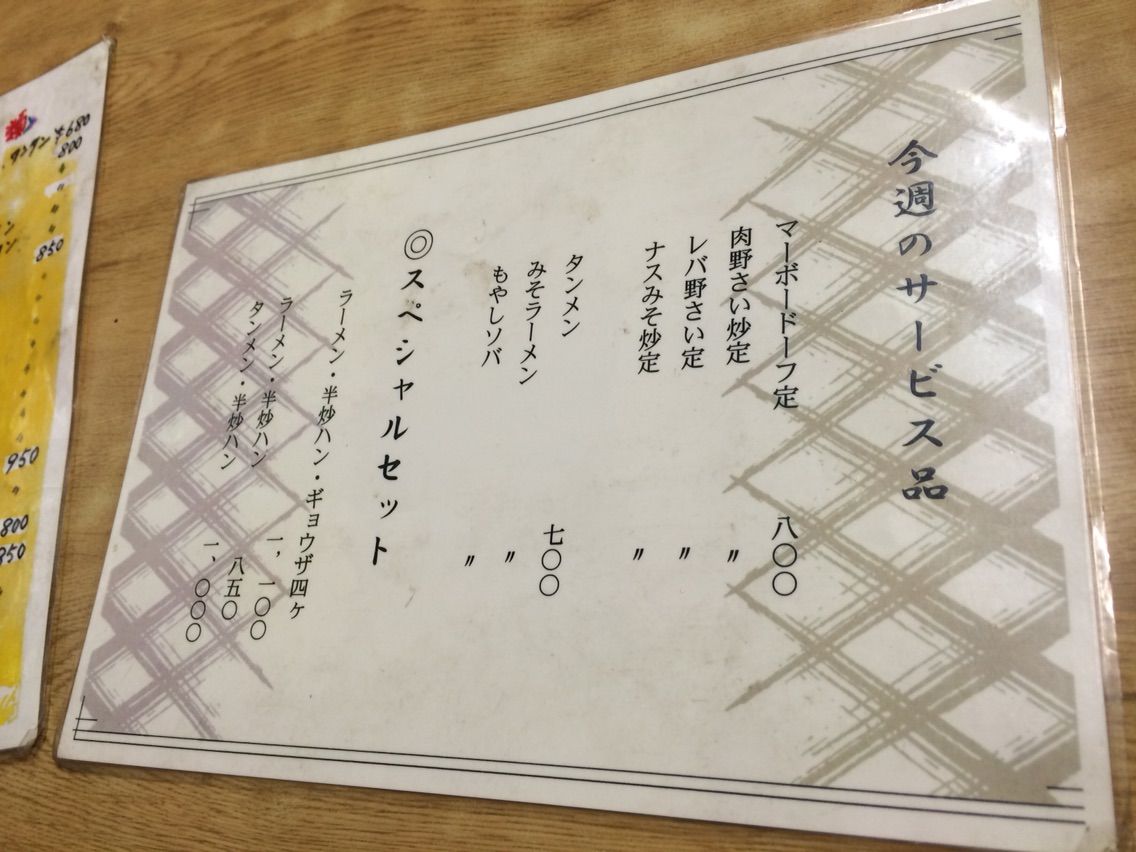 今週のサービス品
マーボードーフ定 八〇〇
肉野さい炒定 〃
レバ野さい定 〃
ナスみそ炒定 〃
タンメン 七〇〇
みそラーメン 〃
もやしソバ 〃
◎スペシャルセット
ラーメン・半炒ハン・ギョウザ四ケ
一、一〇〇
ラーメン・半炒ハン 八五〇
タンメン・半炒ハン 一、〇〇〇
タンタン ¥680
800
〃
〃
850
950
〃
800
850